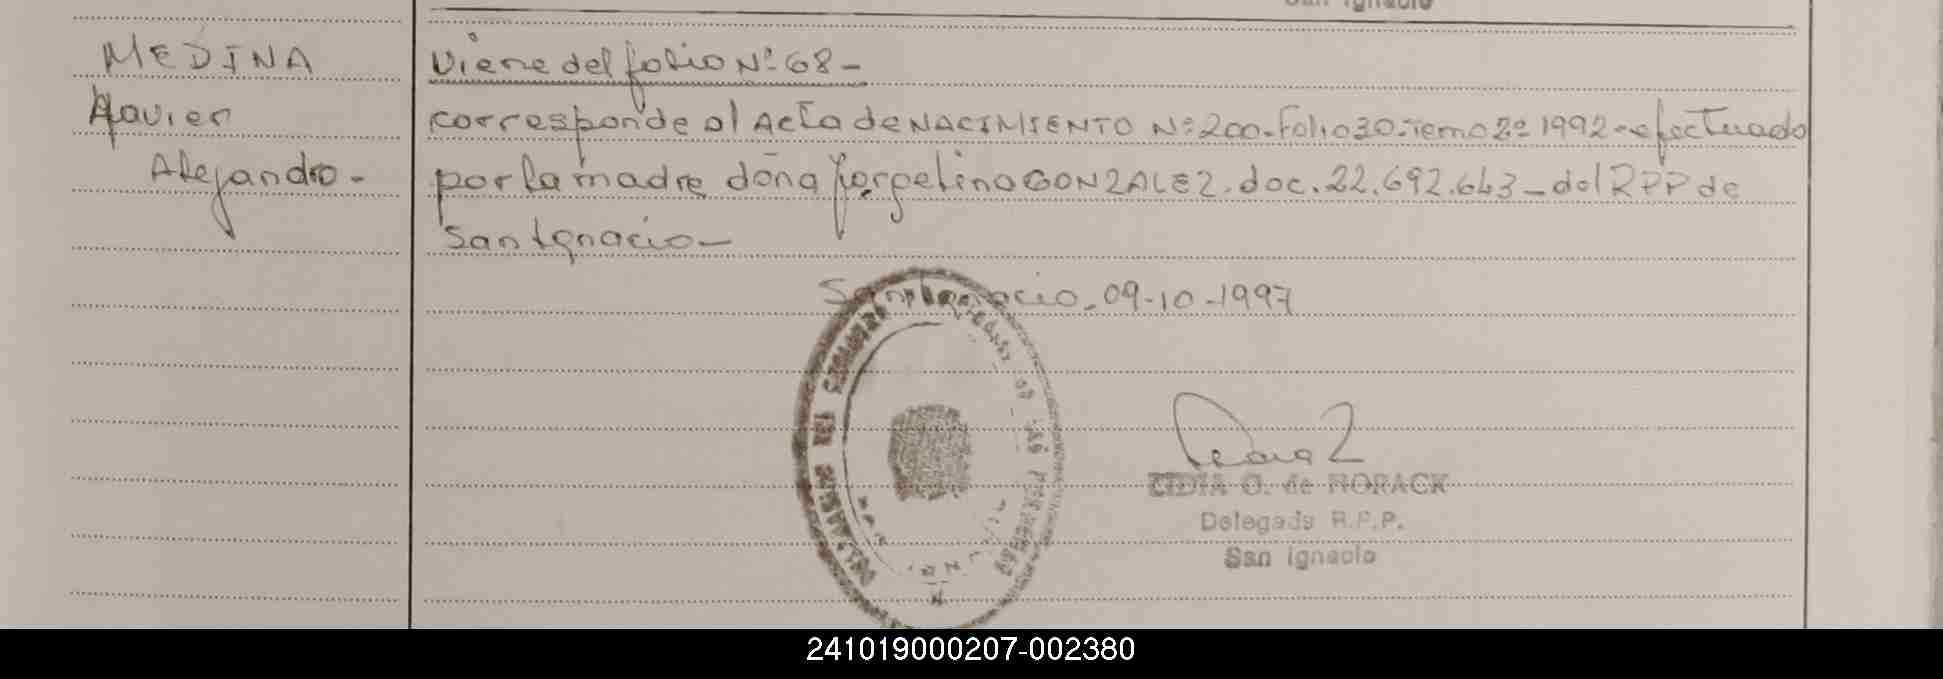 San Ignacio
MEDINA
Javier
Alejandro-
Viene del folio Nº 68-
corresponde al Acta de NACIMIENTO Nº 200-folio 30-Tomo 2º 1992-efectuado
por la madre doña Jorgelina GONZALEZ. doc. 22.692.643-del RPP de
San Ignacio-
San Ignacio, 09-10-1997
LIDIA O. de HORACK
Delegada R.P.P.
San Ignacio
241019000207-002380